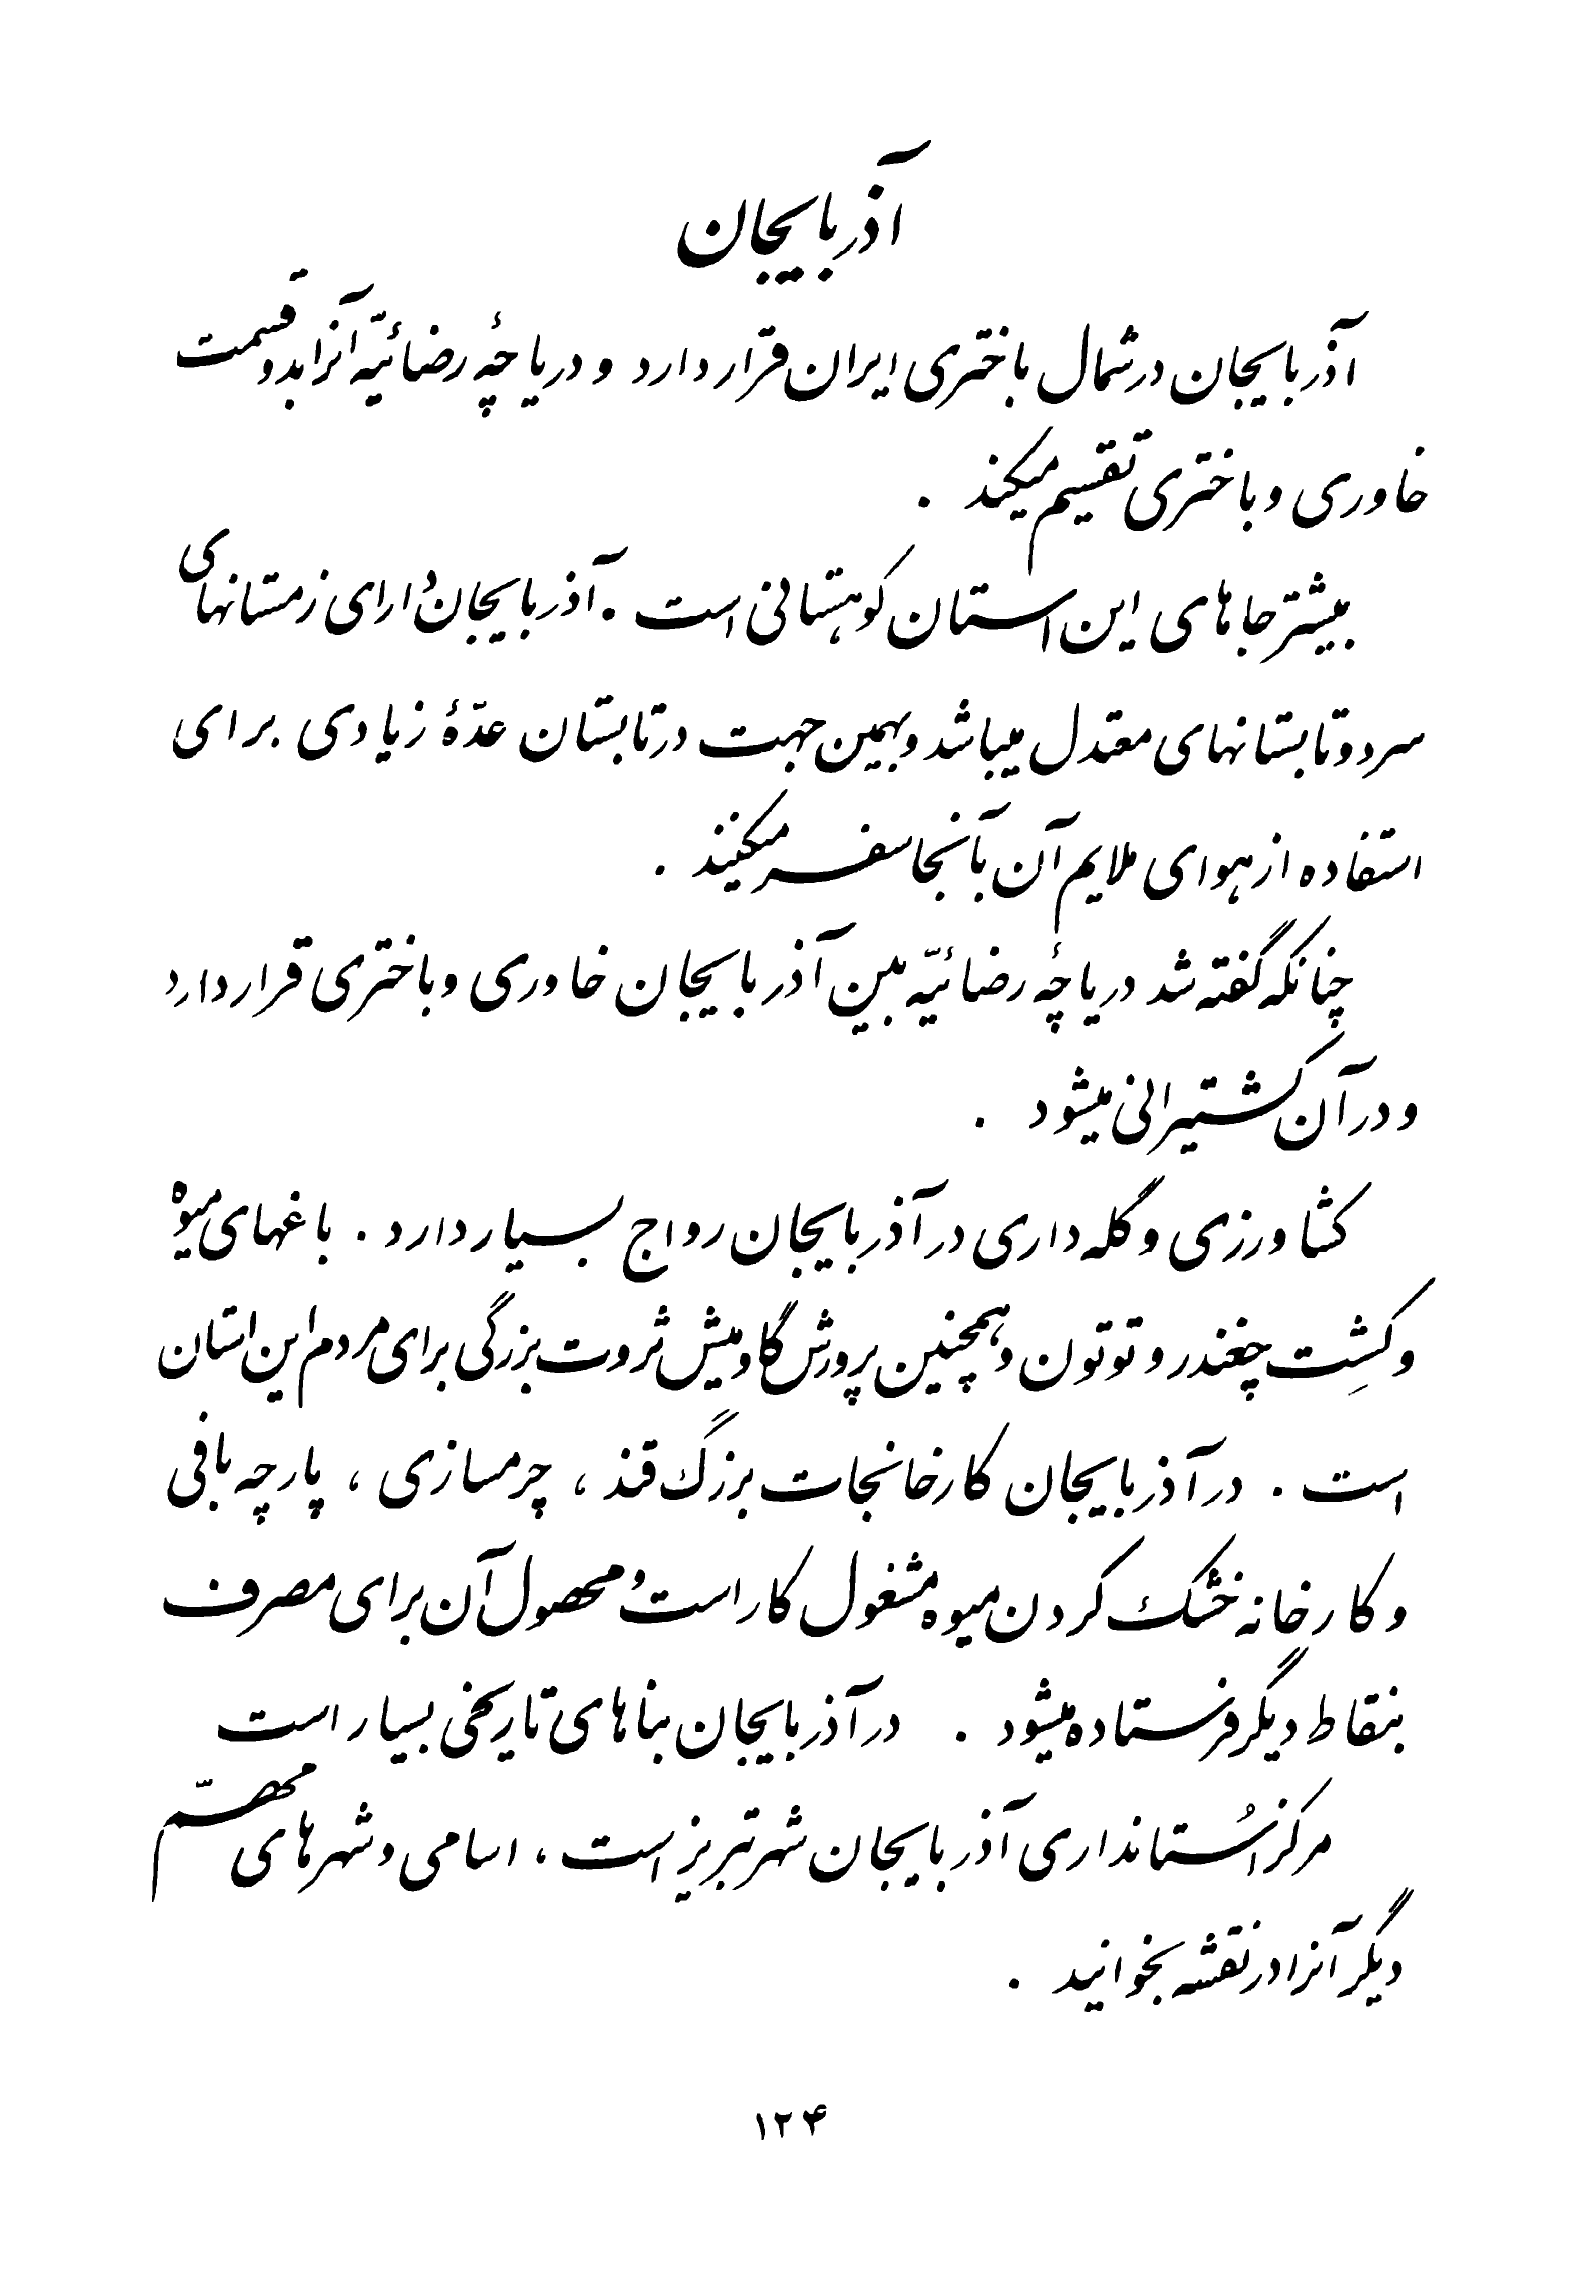 آذربایجان
آذربایجان در شمال باختری ایران قرار دارد و دریاچهٔ رضائیّه آنرا بدو قسمت
خاوری و باختری تقسیم میکند .
بیشتر جاهای این استان کوهستانی است . آذربایجان دارای زمستانهای
سرد و تابستانهای معتدل میباشد و بهمین جهت در تابستان عدّهٔ زیادی برای
استفاده از هوای ملایم آن بآنجا سفر میکنند .
چنانکه گفته شد دریاچهٔ رضائیّه بین آذربایجان خاوری و باختری قرار دارد
و در آن کشتیرانی میشود .
کشاورزی و گله داری در آذربایجان رواج بسیار دارد . باغهای میوه
و کشِت چغندر و توتون و همچنین پرورش گاومیش ثروت بزرگی برای مردم این استان
است . در آذربایجان کارخانجات بزرگ قند ، چرمسازی ، پارچه بافی
و کارخانه خشک کردن میوه مشغول کار است و محصول آن برای مصرف
بنقاط دیگر فرستاده میشود . در آذربایجان بناهای تاریخی بسیار است
مرکز اُستانداری آذربایجان شهر تبریز است ، اسامی و شهرهای مهمّ
دیگر آنرا در نقشه بخوانید .
۱۲۴